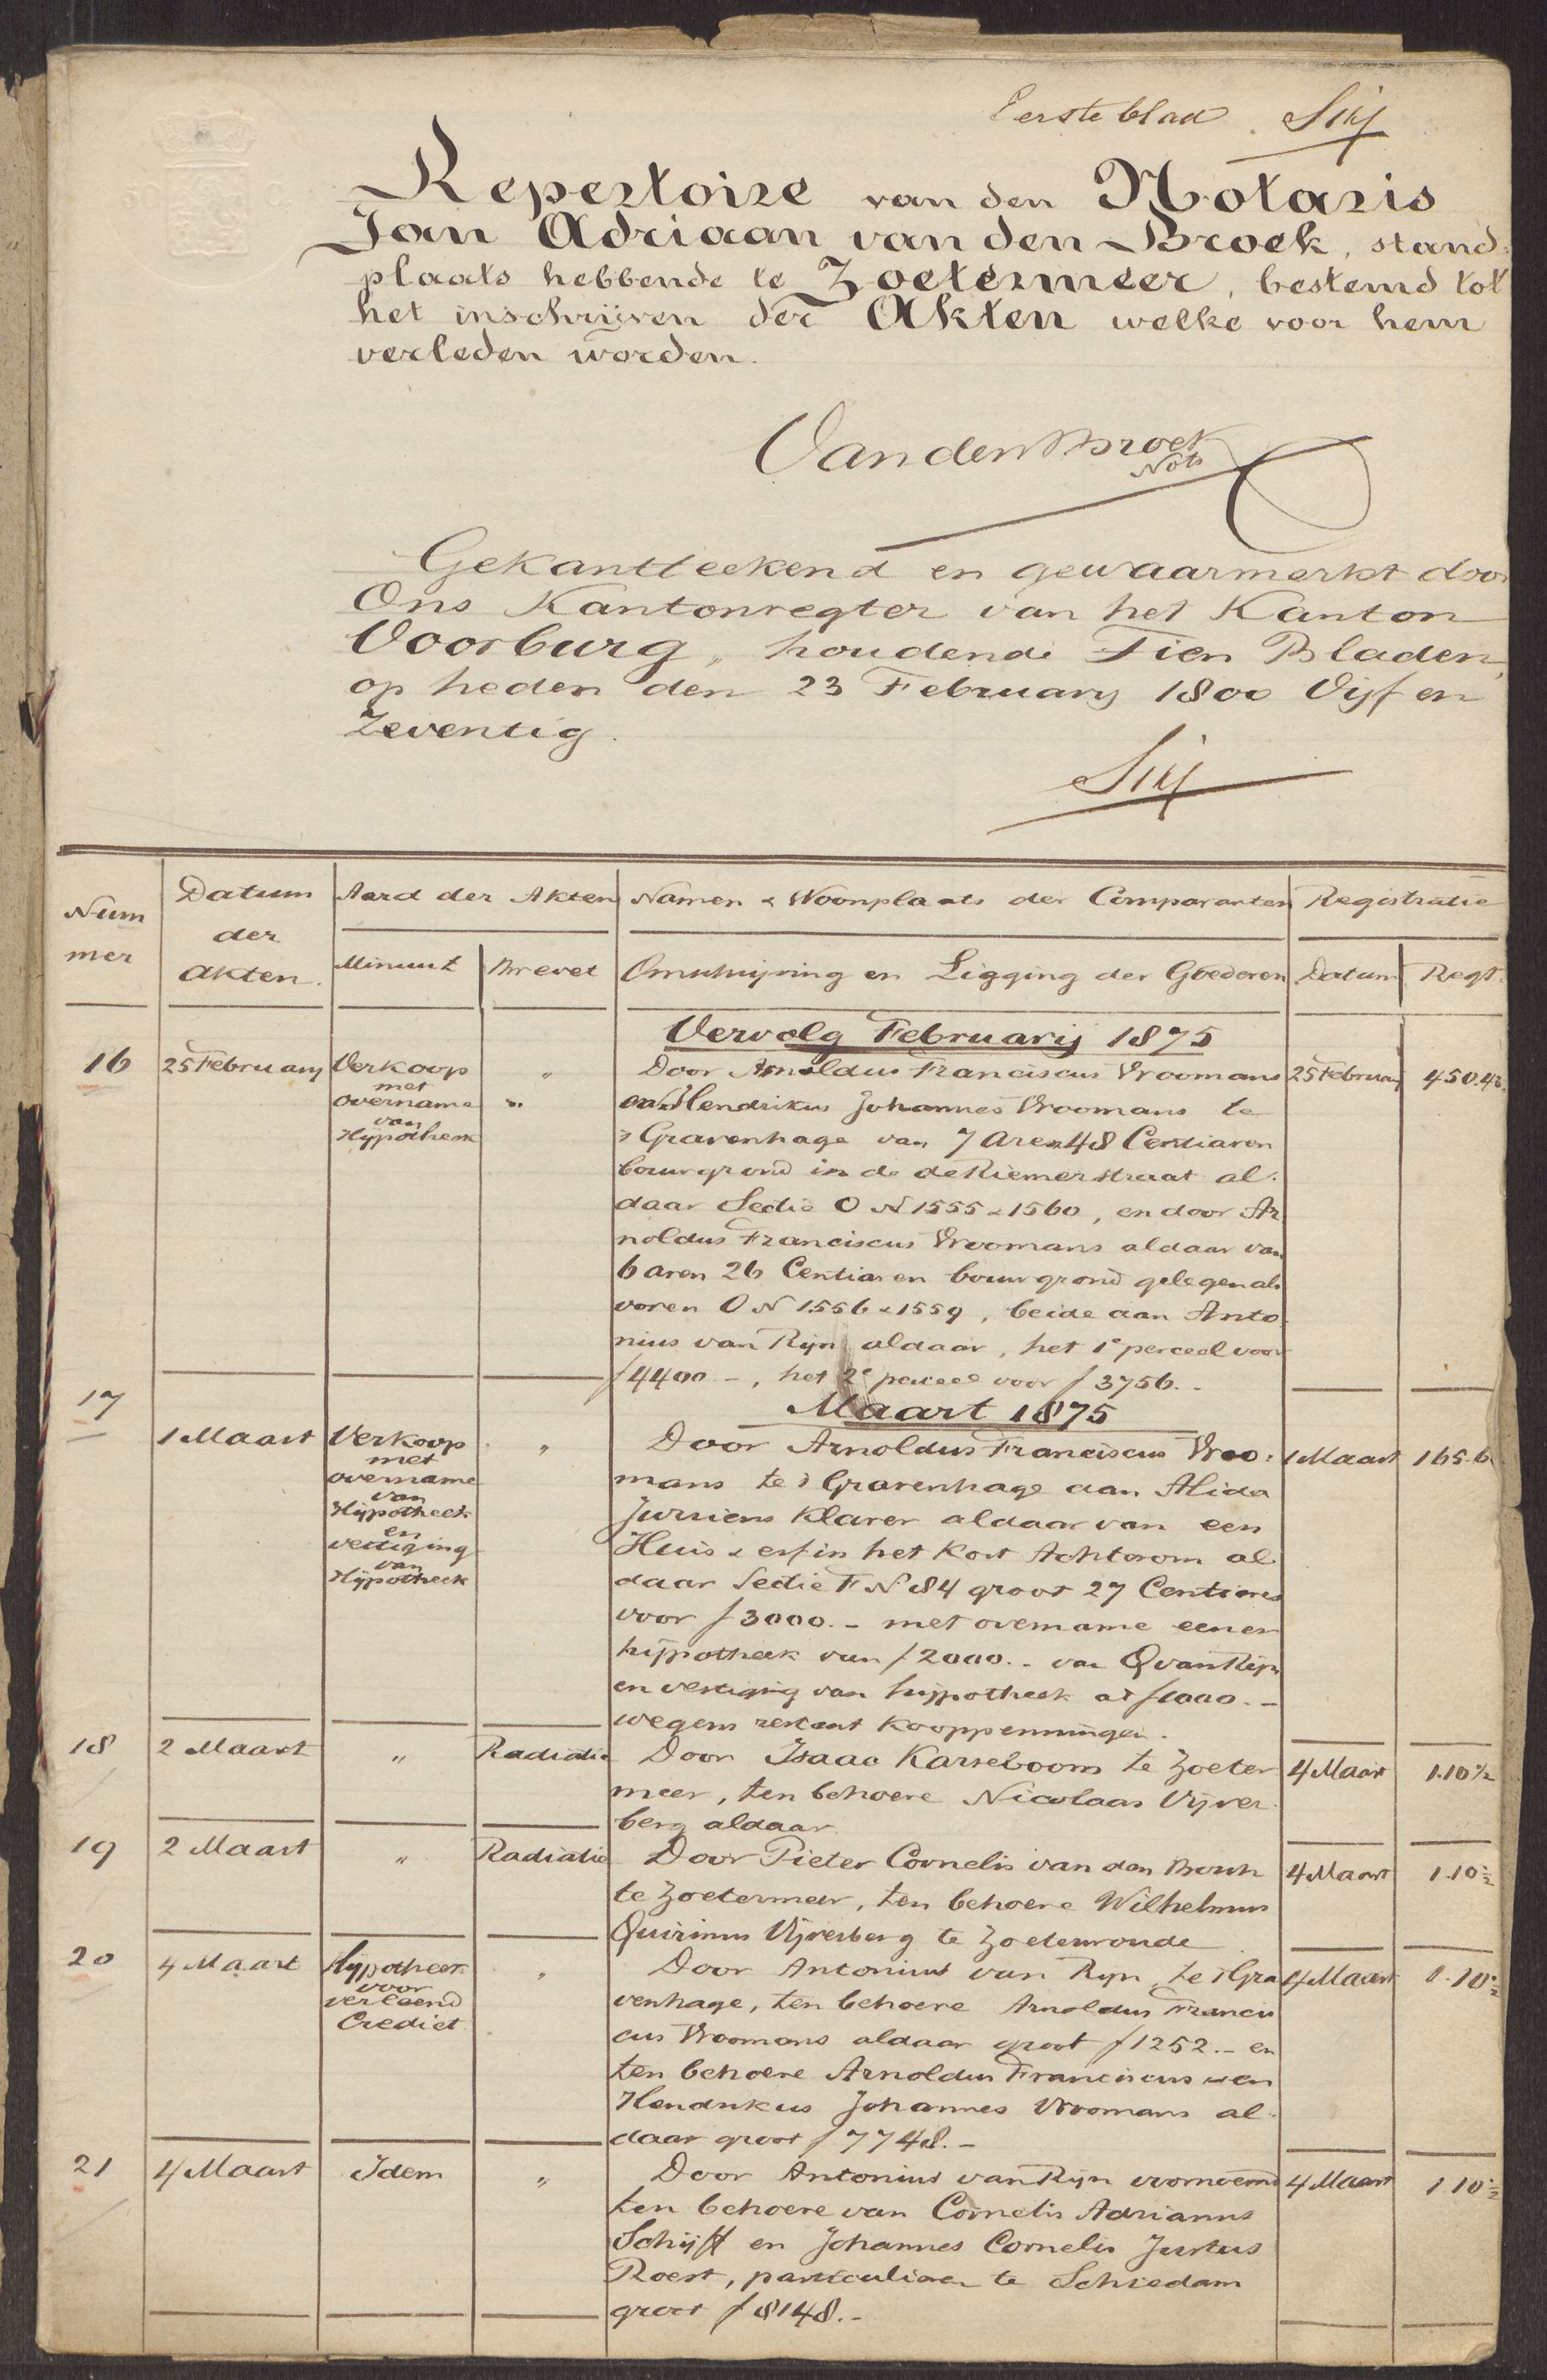 Eerste blad Sixj
Repertoire van den Notaris
Jan Adriaan van den Broek, stand-
plaats hebbende te Zoetermeer, bestemd tot
het inschrijven der Akten welke voor hem
verleden worden.
Van den Broek
Nots
Gekantteekend en gewaarmerkt door
Ons Kantonregter van het Kanton
Voorburg, houdende Tien Bladen,
op heden den 23 February 1800 Vijf en
Zeventig.
Num
mer
Datum
der
Akten.
Aard der Akten
Minuut
Brevet
Namen & Woonplaats der Comparanten
Omschrijving en Ligging der Goederen
Registratie
Datum
Regt.
Vervolg Februarij 1875
16 25 February Verkoop " Door Arnoldus Franciscus Vroomans 25 February 450.48
met
overname " en Hendrikus Johannes Vroomans te
van
Hypotheek 's Gravenhage van 7 Aren 48 Centiaren
bouwgrond in de de Riemerstraat al-
daar Sectie O N 1555 & 1560, en door Ar
noldus Franciscus Vroomans aldaar van
6 aren 26 Centiaren bouwgrond gelegen als
voren O N 1556 & 1559, beide aan Anto
nius van Rijn aldaar, het 1e perceel voor
f 4400.-, het 2e perceel voor f 3756.-
17
Maart 1875
1 Maart Verkoop " Door Arnoldus Franciscus Vroo- 1 Maart 165.6
met
overname mans te 's Gravenhage aan Alida
van
Hypotheek Jurriens Klaver aldaar van een
en
vestiging Huis & erf in het Kort Achterom al
van
Hypotheek daar Sectie F N 84 groot 27 Centiares
voor f 3000.- met overname eener
hypotheek van f 2000.- van Q van Rijn
en vestiging van hypotheek ad f 1000.-
wegens restant Kooppenningen.
18 2 Maart " Radiatie Door Isaac Karseboom te Zoeter 4 Maart 1.10½
meer, ten behoeve Nicolaas Vijver
berg aldaar.
19 2 Maart " Radiatie Door Pieter Cornelis van den Bosch 4 Maart 1.10½
te Zoetermeer, ten behoeve Wilhelmus
Quirinus Vijverberg te Zoeterwoude
20 4 Maart Hypotheek " Door Antonius van Rijn te 's Gra 4 Maart 1.10½
voor
verleend venhage, ten behoeve Arnoldus Francis
Crediet cus Vroomans aldaar groot f 1252.- en
ten behoeve Arnoldus Franciscus en
Hendrikus Johannes Vroomans al-
daar groot f 7748.-
21 4 Maart Idem " Door Antonius van Rijn voornoemd 4 Maart 1.10½
ten behoeve van Cornelis Adrianus
Schijff en Johannes Cornelis Justus
Roest, particulieren te Schiedam
groot f 8148.-